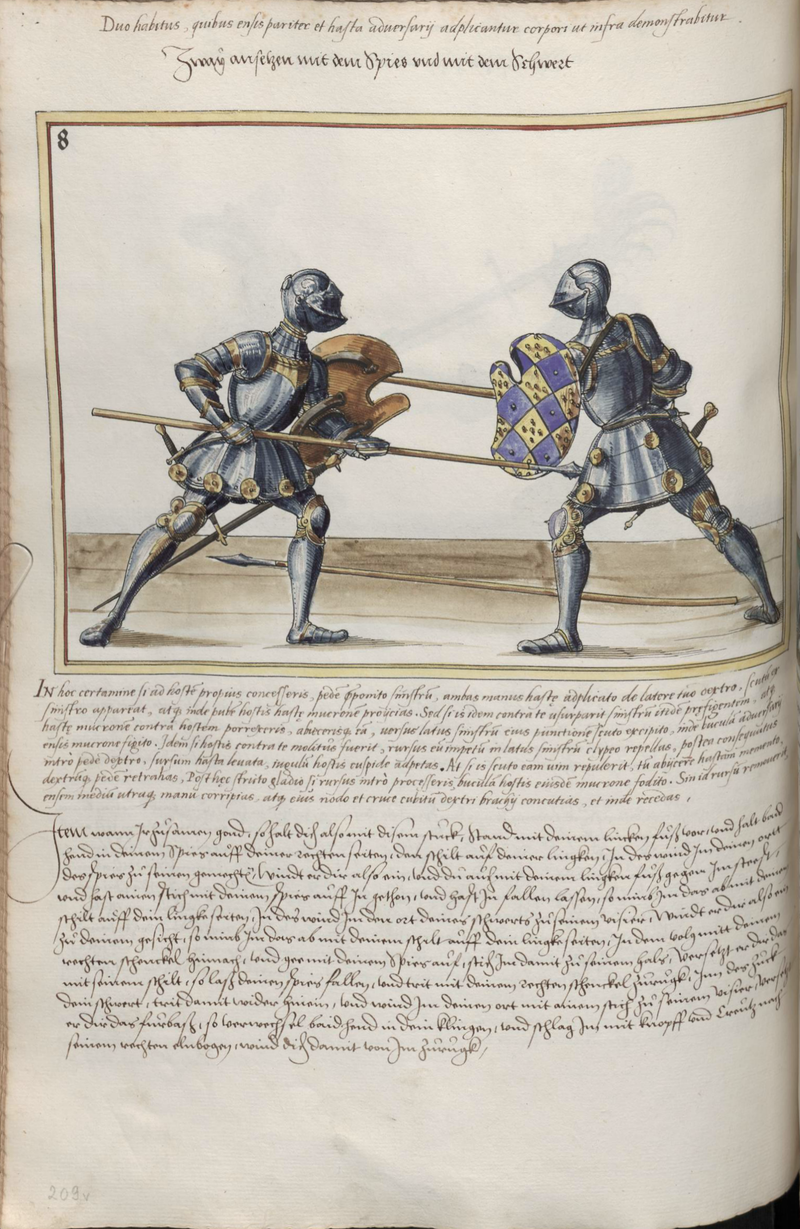 Duo habitus, quibus ensis pariter et hasta adversarij adplicantur corpori ut infra demonstrabitur.
Zway ansetzen mit dem Spies und mit dem Schwert
8
IN hoc certamine si ad hostē propius concesseris, pede p̄posito sinistrū, ambas manus hastę adplicato de latere tuo dextro, scutū ex
sinistro appareat, atq; inde pube hostis hastę mucronē proijcias. Sed si is idem contra te usurparit sinistrū itidē prefigentem, atq
hastę mucronē contra hostem porrexeris, abiecerisq; eā, versus latus sinistrū eius punctionē scuto excipito, inde bucula adversarij
ensis mucrone figito. Idem si hostis contra te molitus fuerit, rursus eū impetū in latus sinistrū clypeo repellas, postea consequutus
intro pede dextro, sursum hasta levata, iugulū hostis cuspide adpetas. At si is scuto eam vim repulerit, tu abijcere hastam memento,
dextrūq; pedē retrahas, Post hęc stricto gladio si rursus intrò processeris, buculā hostis eiusdē mucrone fodito. Sin id rursū removerit,
ensem mediū utraq; manu corripias, atq; eius nodo et cruce cubitū dextri brachij concutias, et inde recedas,
Item wann Ir zusamen gond, so halt dich also mit disem stuck, Stand mit deinem lincken fuß vor, und halt baid
hend in deinem Spies auff deiner rechten seiten, den schilt auf deiner lingken, In des wind Im deinen ort
des spies zu seinen gemechte, Windt er dir also ein, und du auch mit deinem lingken fuß gegen Im steest,
und hast ainen stich mit deinem spies auff In gethon, und hast In fallen lassen, so nimb Im das ab mit deinem
schilt auff dein lingke seiten, In des wind Im den ort deines schwerts zu seinem visier, Windt er dir also ein
zu deinem gesicht, so nimb Im das ab mit deinem schilt auff dein lingke seiten, In dem volg mitt deinem
rechten schenckel hinnach, und gee mit deinem Spies auf, stich Im damit zu seinem hals, Versetzt er dir das
mit seinem schilt, so laß deinen spies fallen, und trit mit deinem rechten schenckel zurugk, Inn des zuck
dein schwert, trit damit wider hinein, und wind Im deinen ort mit ainem stich zu seinem visier, Versetzt
er dir das furbaß, so verwechsel baid hend in dein klingen, und schlag In mit knopff und Creutz nach
seinem rechten elnbogen, wind dich damit von Im zurugk,
209v